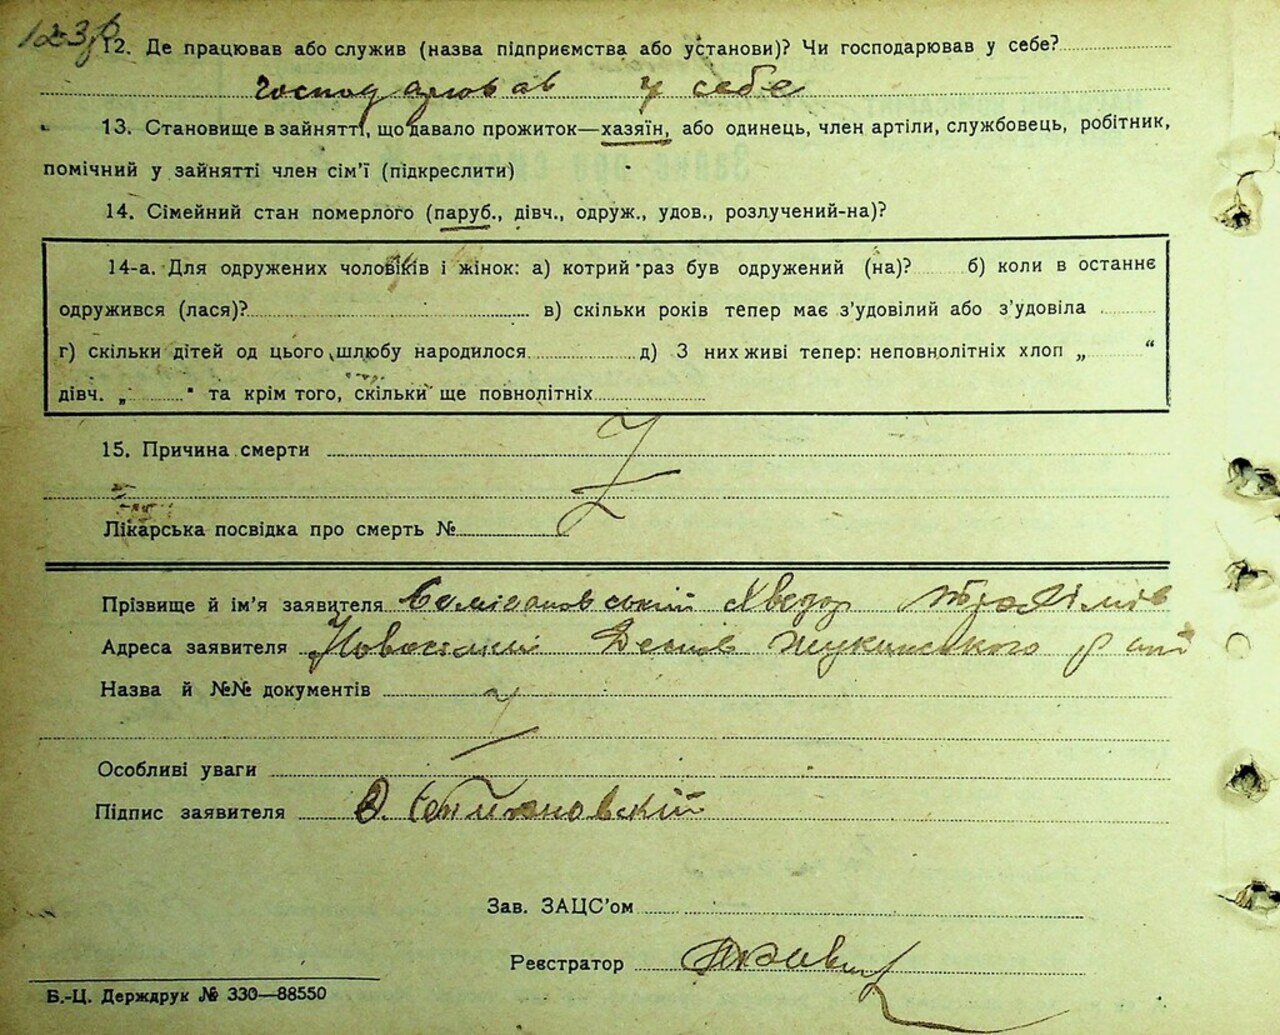 12. Де працював або служив (назва підприємства або установи)? Чи господарював у себе?
господарював у себе
13. Становище в зайнятті, що давало прожиток—хазяїн, або одинець, член артіли, службовець, робітник,
помічний у зайнятті член сім'ї (підкреслити)
14. Сімейний стан померлого (паруб., дівч., одруж., удов., розлучений-на)?
14-а. Для одружених чоловіків і жінок: а) котрий раз був одружений (на)? б) коли в останнє
одружився (лася)? в) скільки років тепер має з'удовілий або з'удовіла
г) скільки дітей од цього шлюбу народилося д) З них живі тепер: неповнолітніх хлоп „ “
дівч. „ " та крім того, скільки ще повнолітніх
15. Причина смерти
Лікарська посвідка про смерть №
Прізвище й ім'я заявителя Хведор
Адреса заявителя
Назва й №№ документів
Особливі уваги
Підпис заявителя
Зав. ЗАЦС'ом
Реєстратор
Б.-Ц. Держдрук № 330—88550